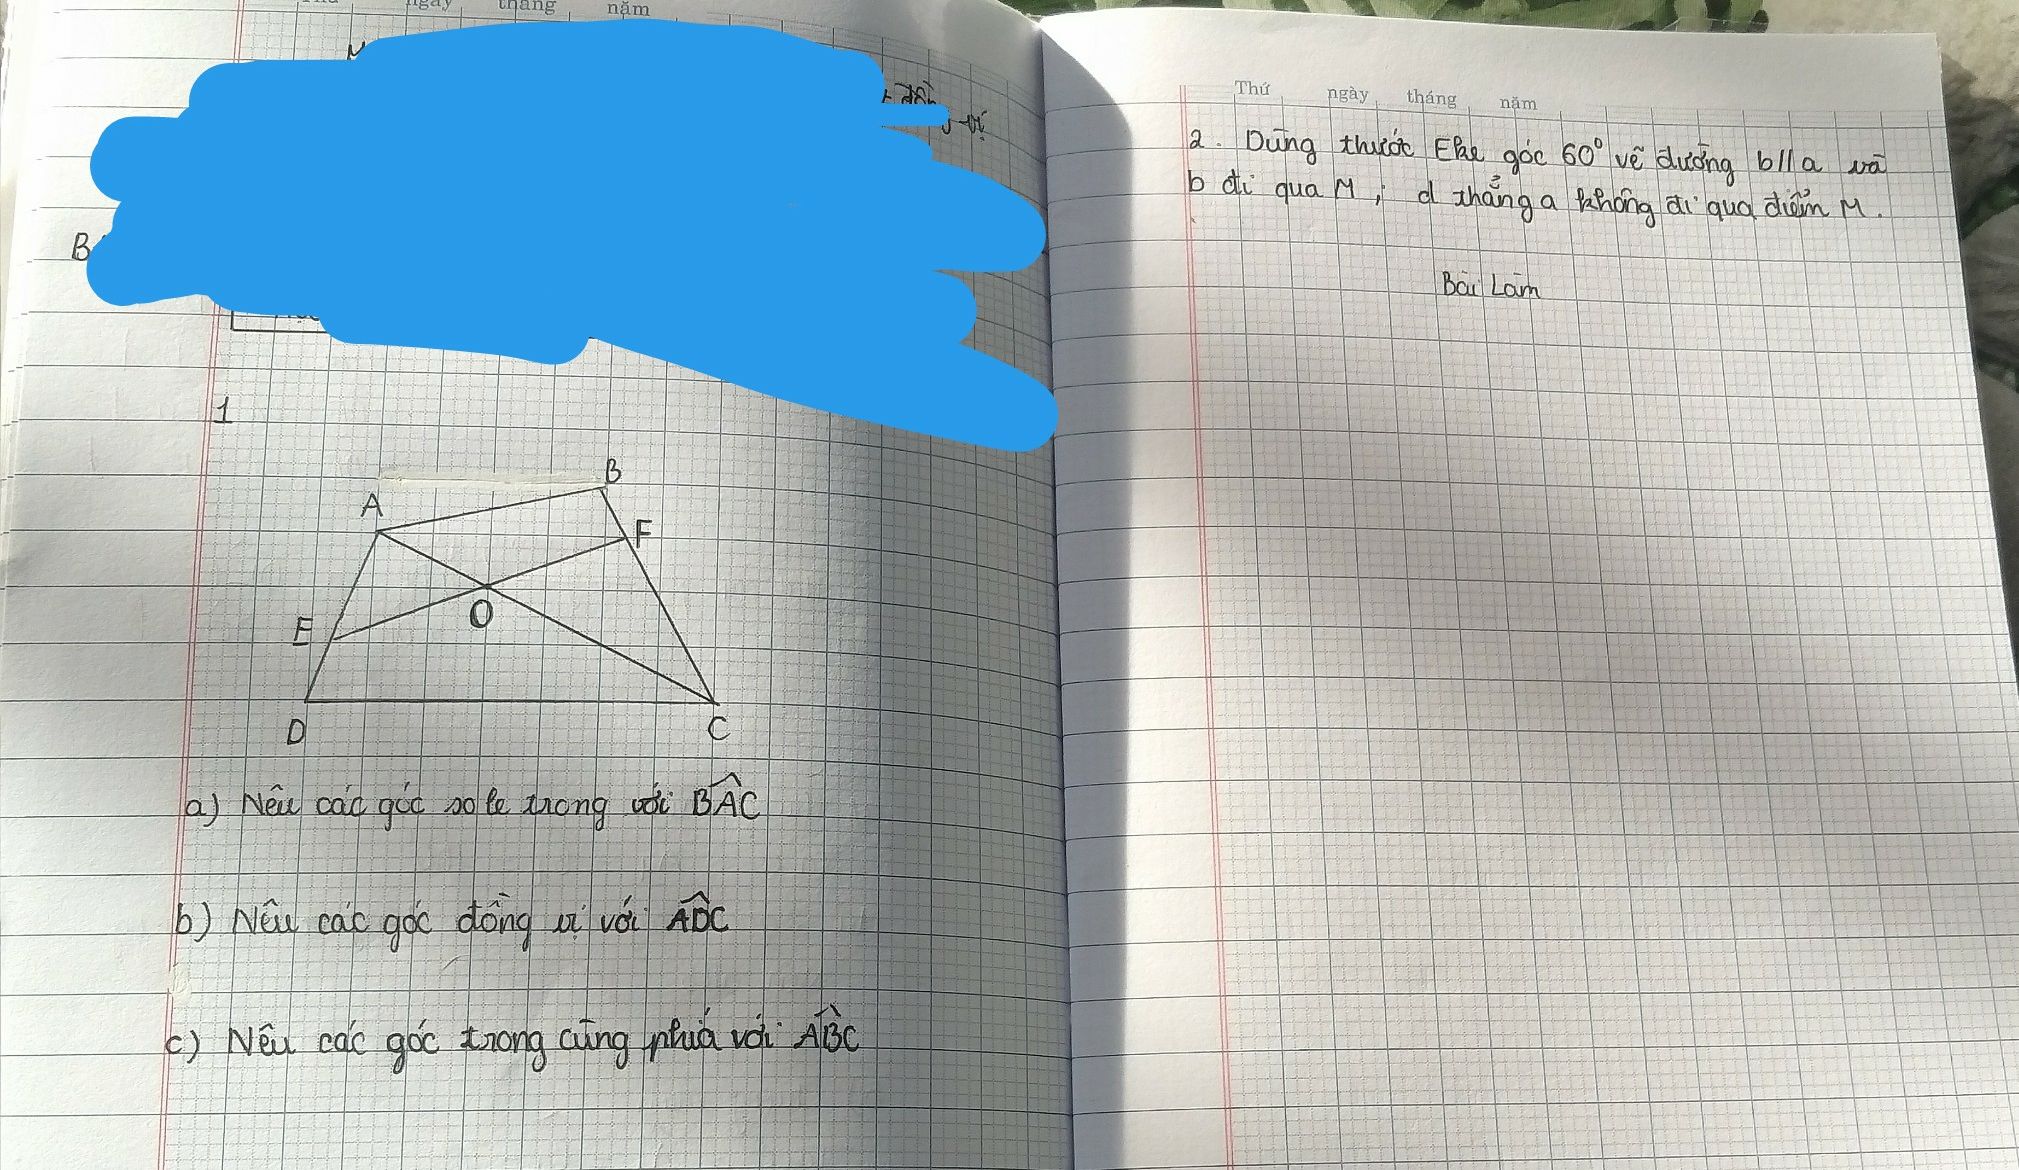 ngày tháng năm
1
A
B
F
E
O
D
C
a) Nêu các góc so le trong với BAC
b) Nêu các góc đồng vị với ADC
c) Nêu các góc trong cùng phía với ABC
Thứ ngày tháng năm
2. Dùng thước Eke góc 60° vẽ đường b//a và
b đi qua M; d thẳng a không đi qua điểm M.
Bài Làm